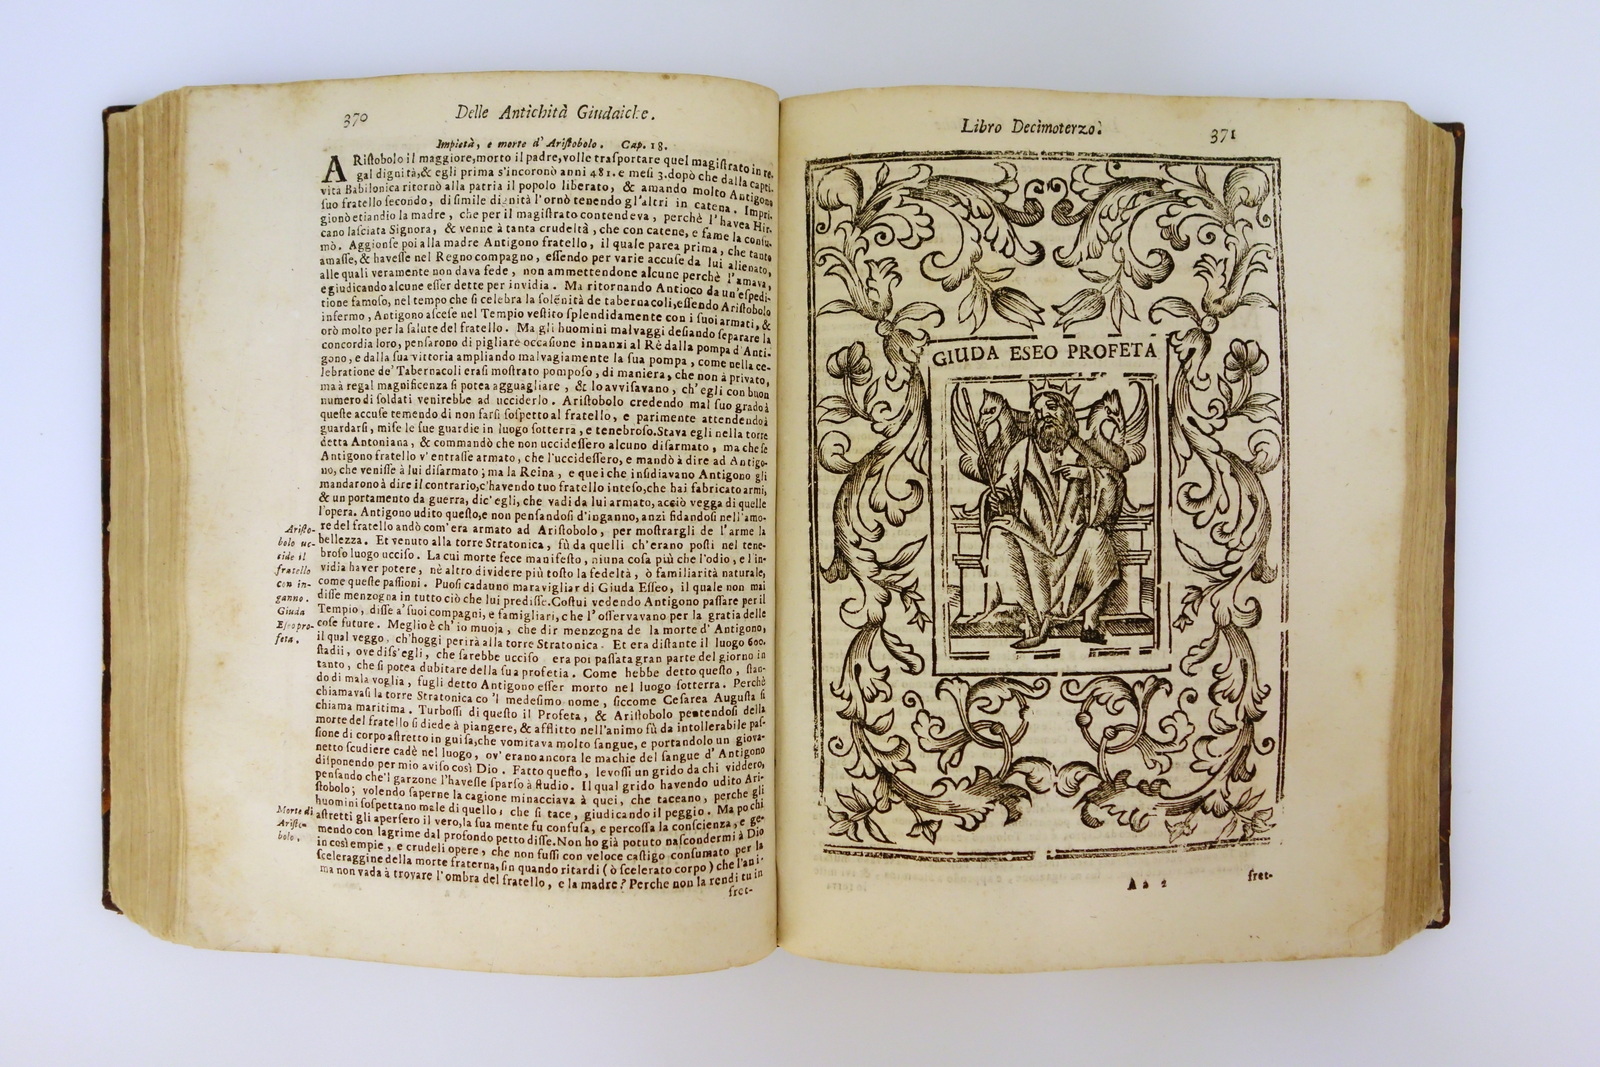 370
Delle Antichità Giudaiche.
Impietà, e morte d' Ariſtobolo. Cap. 18.
ARiſtobolo il maggiore, morto il padre, volle traſportare quel magiſtrato in re-
gal dignità, & egli prima s'incoronò anni 481. e meſi 3. dopò che dalla capti-
vita Babilonica ritornò alla patria il popolo liberato, & amando molto Antigono
ſuo fratello ſecondo, di ſimile dignità l'ornò tenendo gl'altri in catena. Impri-
gionò etiandio la madre, che per il magiſtrato contendeva, perchè l'havea Hir-
cano laſciata Signora, & venne à tanta crudeltà, che con catene, e fame la conſu-
mò. Aggionſe poi alla madre Antigono fratello, il quale parea prima, che tanto
amaſſe, & haveſſe nel Regno compagno, eſſendo per varie accuſe da lui alienato,
alle quali veramente non dava fede, non ammettendone alcune perchè l'amava,
e giudicando alcune eſſer dette per invidia. Ma ritornando Antioco da un'eſpedi-
tione famoſo, nel tempo che ſi celebra la ſolēnità de tabernacoli, eſſendo Ariſtobolo
infermo, Antigono aſceſe nel Tempio veſtito ſplendidamente con i ſuoi armati, &
orò molto per la ſalute del fratello. Ma gli huomini malvaggi deſiando ſeparare la
concordia loro, penſarono di pigliare occaſione innanzi al Rè dalla pompa d'Anti-
gono, e dalla ſua vittoria ampliando malvagiamente la ſua pompa, come nella ce-
lebratione de' Tabernacoli eraſi moſtrato pompoſo, di maniera, che non à privato,
ma à regal magnificenza ſi potea agguagliare, & lo avviſavano, ch'egli con buon
numero di ſoldati venirebbe ad ucciderlo. Ariſtobolo credendo mal ſuo grado à
queſte accuſe temendo di non farſi ſoſpetto al fratello, e parimente attendendo à
guardarſi, miſe le ſue guardie in luogo ſotterra, e tenebroſo. Stava egli nella torre
detta Antoniana, & commandò che non uccideſſero alcuno diſarmato, ma che ſe
Antigono fratello v'entraſſe armato, che l'uccideſſero, e mandò à dire ad Antigo-
no, che veniſſe à lui diſarmato; ma la Reina, e quei che inſidiavano Antigono gli
mandarono à dire il contrario, c'havendo tuo fratello inteſo, che hai fabricato armi,
& un portamento da guerra, dic' egli, che vadi da lui armato, acciò vegga di quelle
l'opera. Antigono udito queſto, e non penſandoſi d'inganno, anzi fidandoſi nell'amo-
re del fratello andò com' era armato ad Ariſtobolo, per moſtrargli de l'arme la
bellezza. Et venuto alla torre Stratonica, fù da quelli ch'erano poſti nel tene-
broſo luogo ucciſo. La cui morte fece manifeſto, niuna coſa più che l'odio, e l'in-
vidia haver potere, nè altro dividere più toſto la fedeltà, ò familiarità naturale,
come queſte paſſioni. Puoſi cadauno maravigliar di Giuda Eſſeo, il quale non mai
diſſe menzogna in tutto ciò che lui prediſſe. Coſtui vedendo Antigono paſſare per il
Tempio, diſſe a' ſuoi compagni, e famigliari, che l'oſſervavano per la gratia delle
coſe future. Meglio è ch' io muoja, che dir menzogna de la morte d' Antigono,
il qual veggo, ch'hoggi perirà alla torre Stratonica. Et era diſtante il luogo 600.
ſtadii, ove diſs'egli, che ſarebbe ucciſo era poi paſſata gran parte del giorno in
tanto, che ſi potea dubitare della ſua profetia. Come hebbe detto queſto, ſtan-
do di mala voglia, fugli detto Antigono eſſer morto nel luogo ſotterra. Perchè
chiamavaſi la torre Stratonica co 'l medeſimo nome, ſiccome Ceſarea Auguſta ſi
chiama maritima. Turboſſi di queſto il Profeta, & Ariſtobolo pentendoſi della
morte del fratello ſi diede à piangere, & afflitto nell'animo fù da intollerabile paſ-
ſione di corpo aſtretto in guiſa, che vomitava molto ſangue, e portandolo un giova-
netto ſcudiere cadè nel luogo, ov' erano ancora le machie del ſangue d' Antigono
diſponendo per mio aviſo così Dio. Fatto queſto, levoſſi un grido da chi viddero,
penſando che'l garzone l'haveſſe ſparſo à ſtudio. Il qual grido havendo udito Ari-
ſtobolo; volendo ſaperne la cagione minacciava à quei, che taceano, perche gli
huomini ſoſpettano male di quello, che ſi tace, giudicando il peggio. Ma poi chi
aſtretti gli aperſero il vero, la ſua mente fu confuſa, e percoſſa la conſcienza, e ge-
mendo con lagrime dal profondo petto diſſe. Non ho già potuto naſcondermi à Dio
in così empie, e crudeli opere, che non fuſſi con veloce caſtigo conſumato per la
ſceleraggine della morte fraterna, ſin quando ritardi (ò ſcelerato corpo) che l'ani-
ma non vada à trovare l'ombra del fratello, e la madre? Perche non la rendi tu in
fret-
Ariſto-
bolo uc-
cide il
fratello
con in-
ganno.
Giuda
Eſeo pro-
feta.
Morte di
Ariſto-
bolo.
Libro Decimoterzo.
371
GIUDA ESEO PROFETA
A a 2
fret-